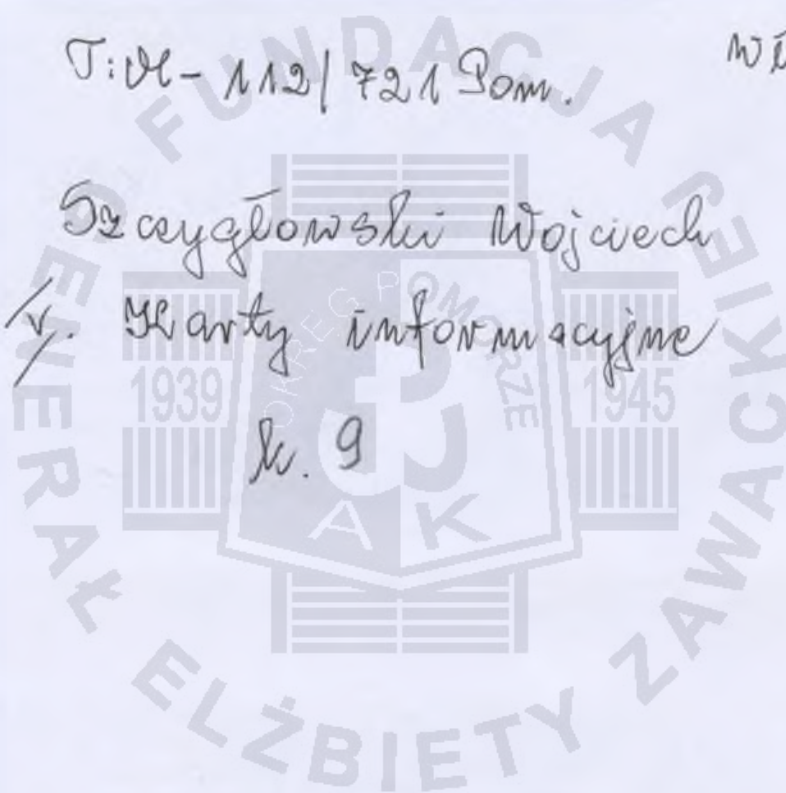 T: M-112/721 Pom.
Szczygłowski Wojciech
V. Karty informacyjne
k. 9
FUNDACJA GENERAŁ ELŻBIETY ZAWACKIEJ
OKRĘG POMORZE
1939
1945
AK